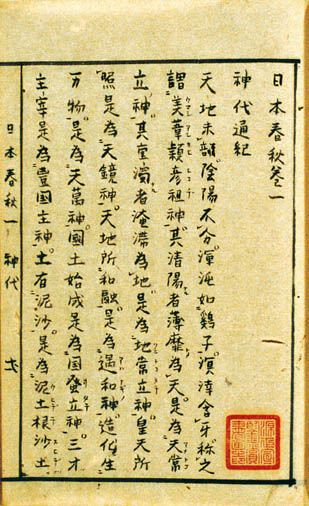 日本春秋巻一
神代通紀
天地未剖陰陽不分渾沌如鷄子溟涬含牙称之
謂美葦穎彦祖神其清陽者薄靡為天是為天常
立神其重濁者淹滞為地是為地常立神皇天所
照是為天鏡神天地所和融是為遇和神造化生
万物是為天萬神國土始成是為国發立神三才
主宰是為豊國主神土有泥沙是為泥土根沙土
日本春秋一 神代